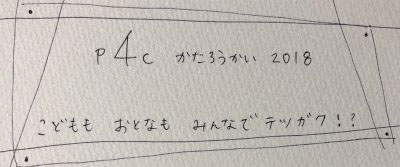 P4C かたろうかい 2018
こどもも おとなも みんなで テツガク!?